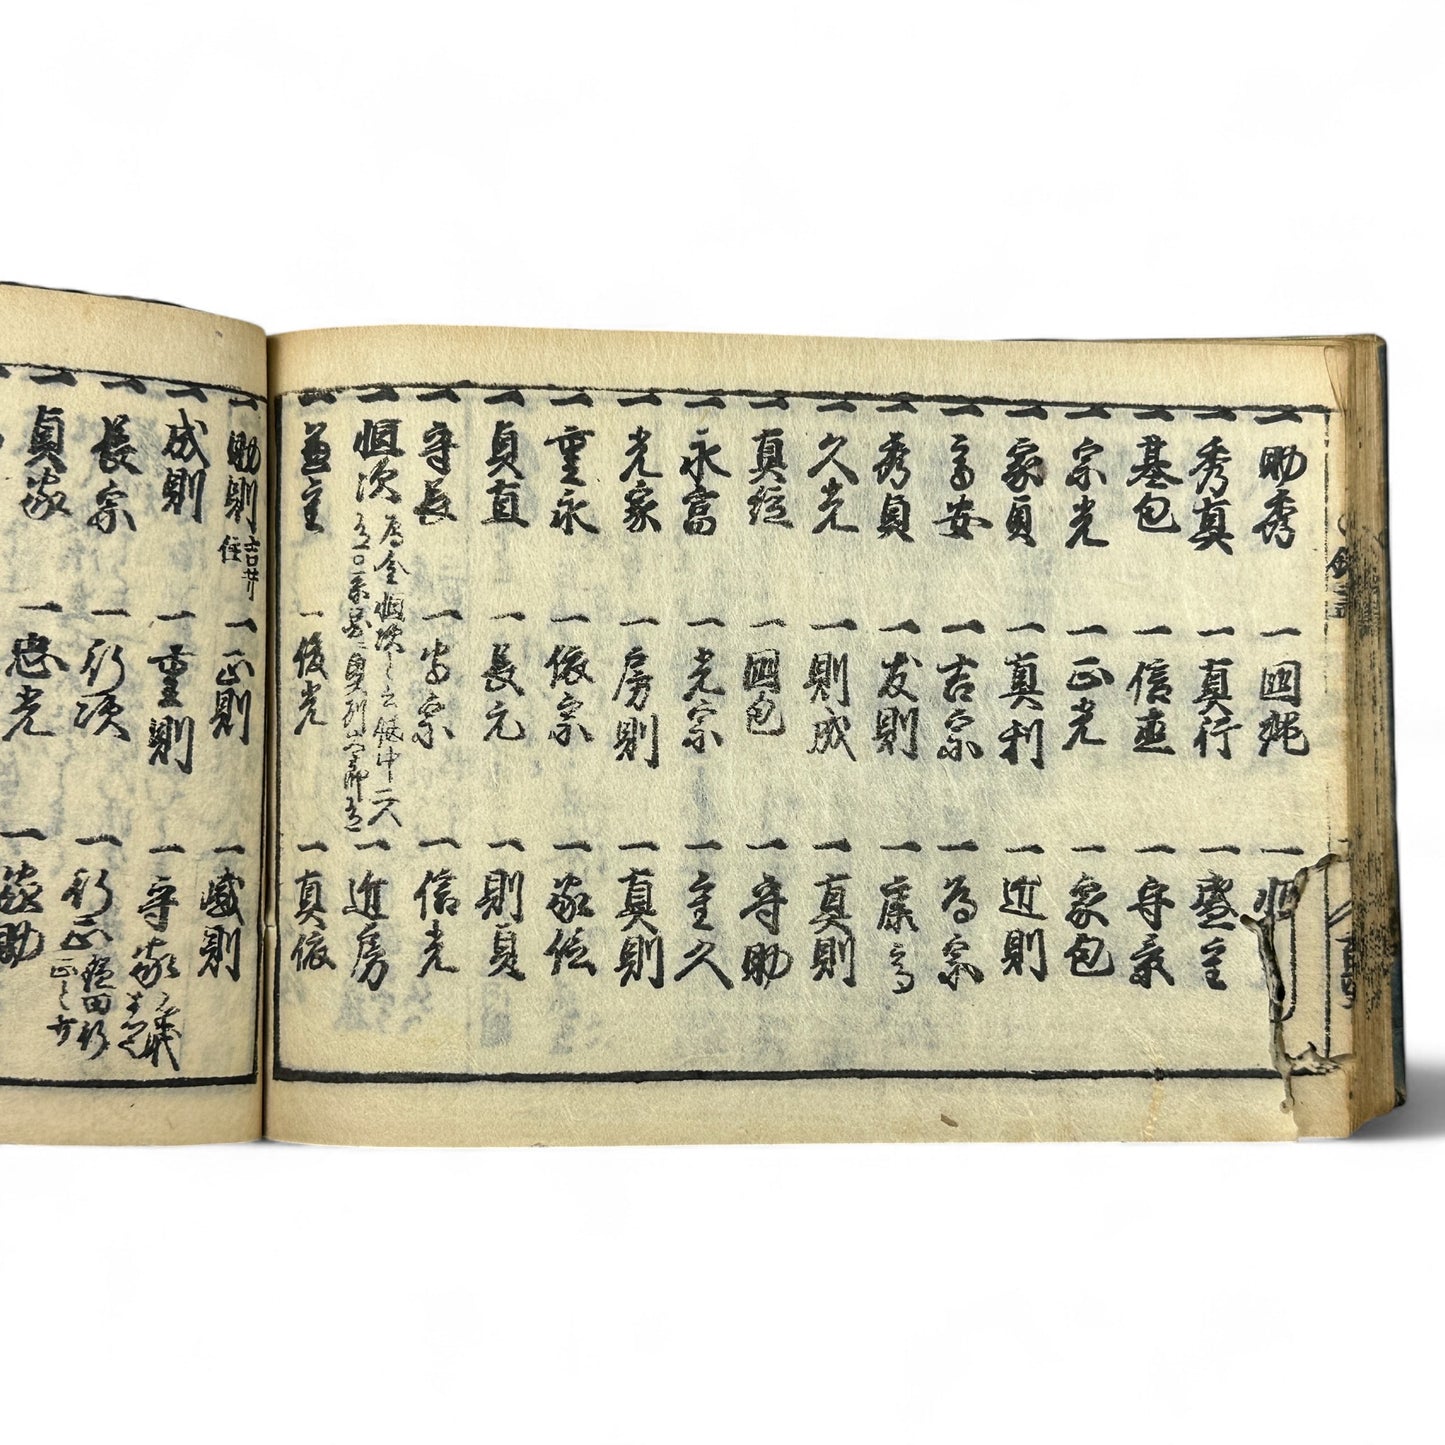 一助秀 一国縄 一恒
一秀真 一真行 一盛重
一基包 一信直 一守家
一宗光 一正光 一家包
一家貞 一真利 一近則
一高安 一吉宗 一為宗
一秀貞 一友則 一康高
一久光 一則成 一真則
一真経 一国包 一守助
一永富 一光宗 一重久
一光家 一房則 一真則
一重永 一依宗 一家依
一貞直 一長元 一則貞
一守長 一安宗 一信光
一恒次 一近房
一重 一俊光 一真依
一助則 吉井住 一正則 一盛則
一成則 一重則 一守家
一長宗 一行次 一行正
一貞家 一忠光 助